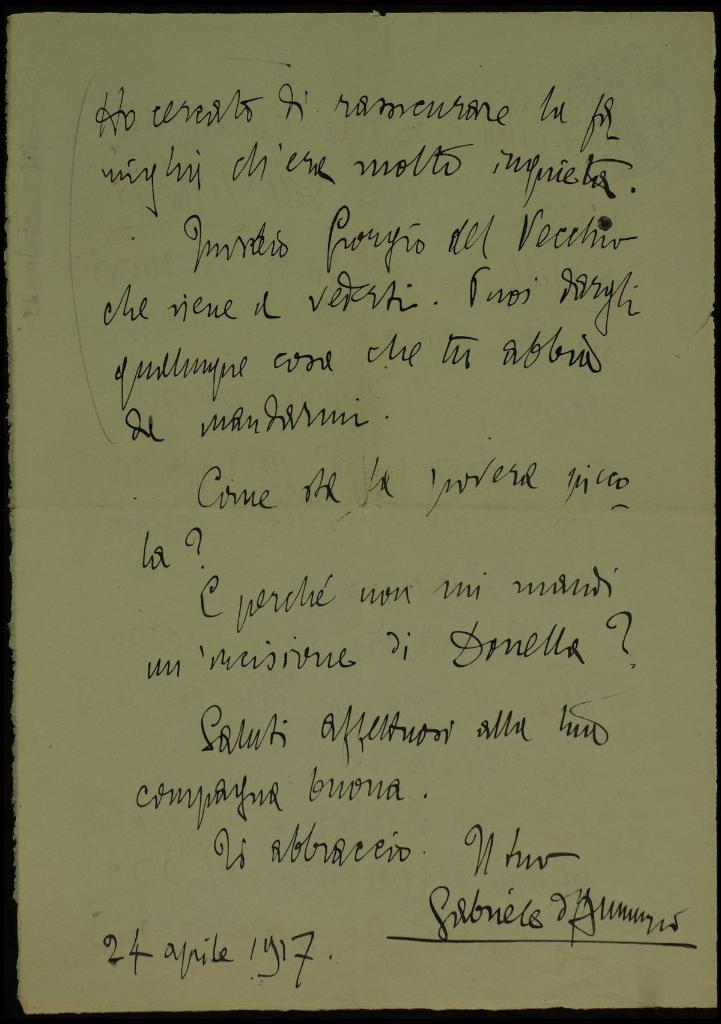 Ho cercato di rassicurare la fa
miglia ch'era molto inquieta.
Invio Giorgio del Vecchio
che viene a vederti. Puoi dargli
qualunque cosa che tu abbia
da mandarmi.
Come sta la povera picco
la?
E perché non mi mandi
un'incisione di Donella?
Saluti affettuosi alla tua
compagna buona.
Ti abbraccio. Il tuo
Gabriele d'Annunzio
24 aprile 1917.